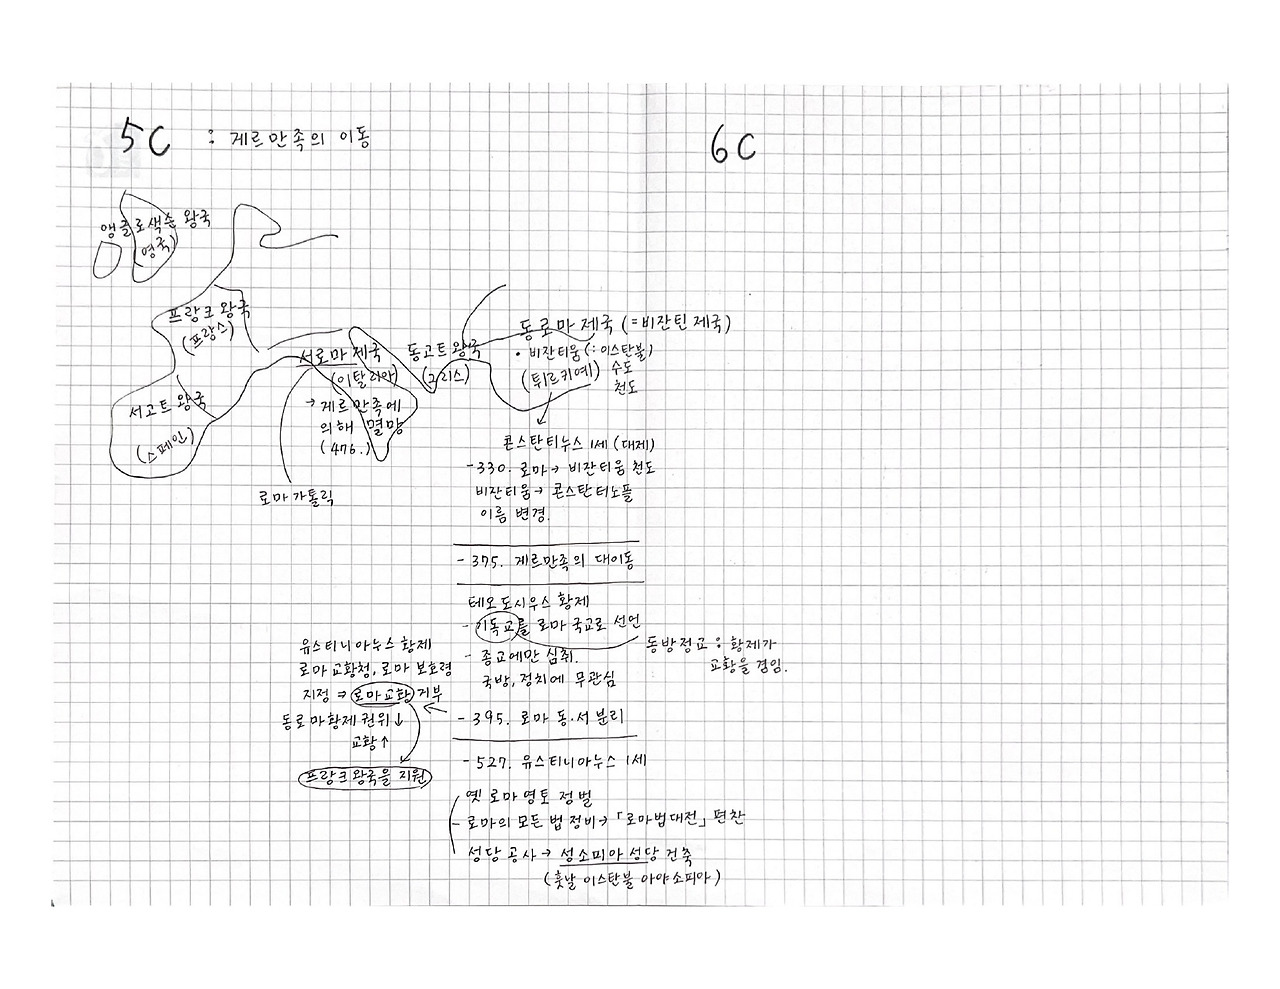 5C : 게르만족의 이동
6C
앵글로색슨 왕국
(영국)
프랑크 왕국
(프랑스)
서고트 왕국
(스페인)
서로마 제국
(이탈리아)
→ 게르만족에
의해 멸망
(476.)
로마 가톨릭
동고트 왕국
(그리스)
동로마 제국 (=비잔틴 제국)
• 비잔티움 (:이스탄불)
(튀르키예) 수도
천도
콘스탄티누스 1세 (대제)
-330. 로마 → 비잔티움 천도
비잔티움 → 콘스탄티노플
이름 변경.
- 375. 게르만족의 대이동
테오도시우스 황제
- 기독교를 로마 국교로 선언
동방정교 : 황제가
교황을 겸임.
- 종교에만 심취.
국방, 정치에 무관심
- 395. 로마 동·서 분리
유스티니아누스 황제
로마 교황청, 로마 보호령
지정 ⇒ 로마교황 거부
동로마황제 권위↓
교황↑
프랑크 왕국을 지원
- 527. 유스티니아누스 1세
옛 로마 영토 정벌
- 로마의 모든 법 정비 → 「로마법대전」 편찬
성당 공사 → 성소피아 성당 건축
(훗날 이스탄불 아야소피아)